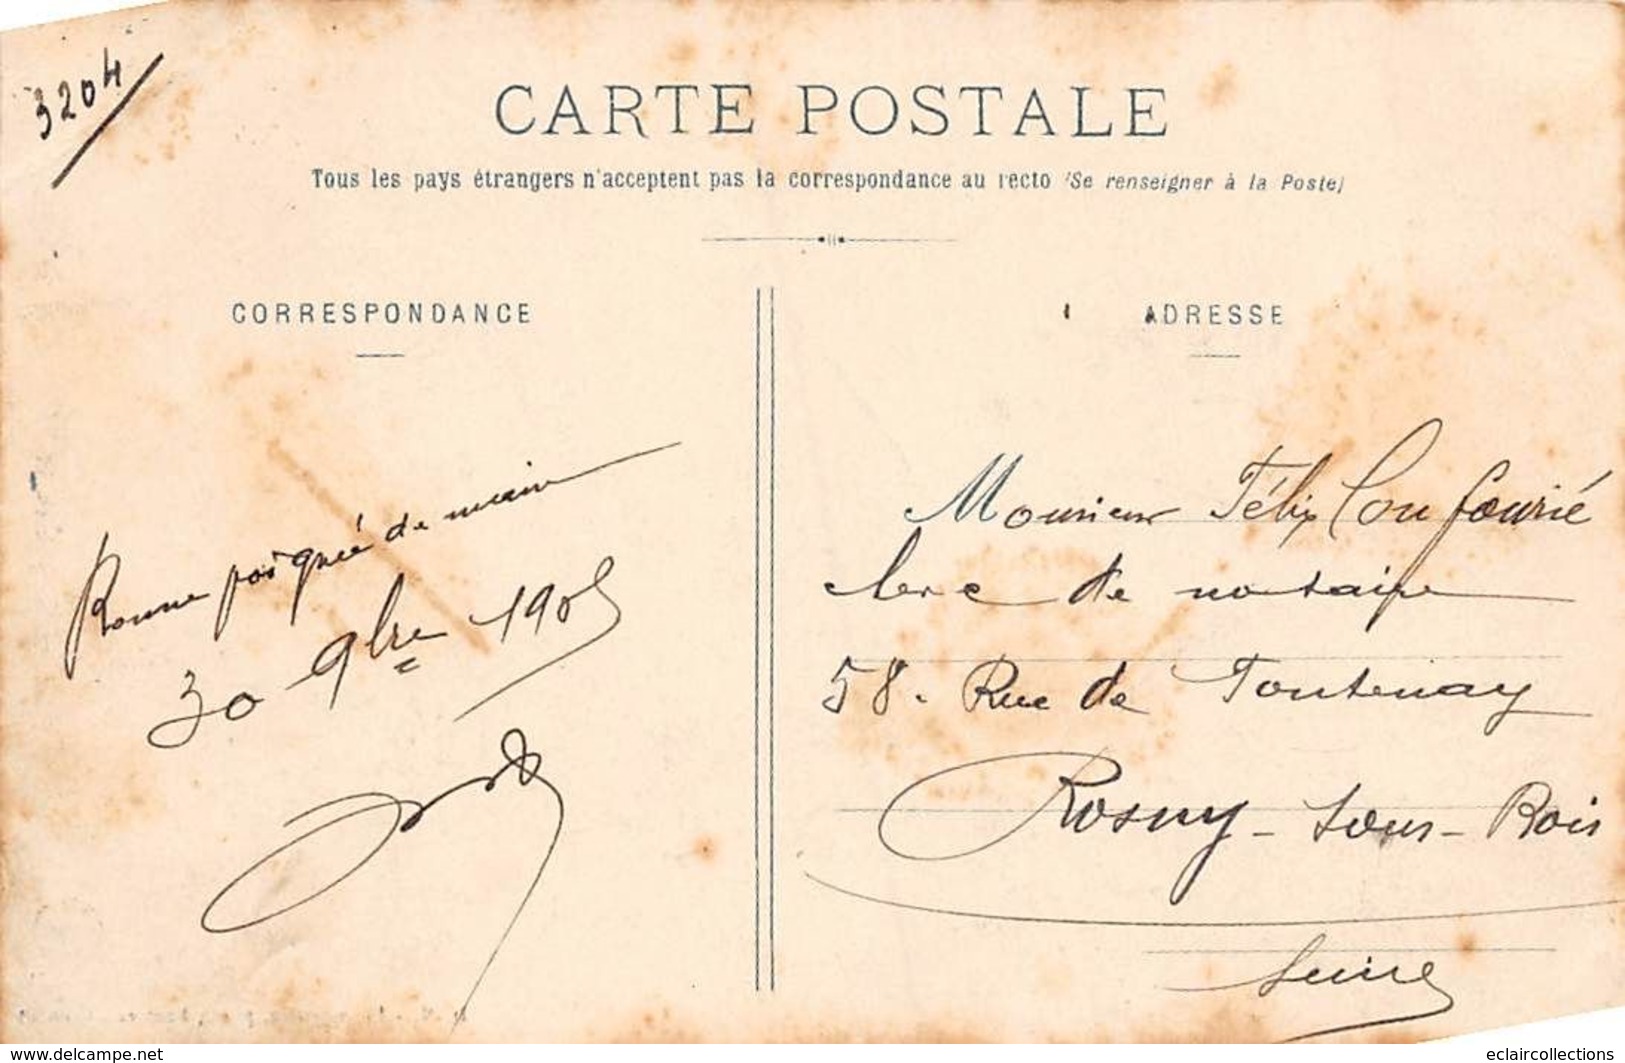 3204
CARTE POSTALE
Tous les pays étrangers n'acceptent pas la correspondance au recto (Se renseigner à la Poste)
CORRESPONDANCE
Bonne poignée de main
30 9bre 1905
ADRESSE
Monsieur Félix
clerc de notaire
58. Rue de Fontenay
Rosny-sous-Bois
Seine
www.delcampe.net
eclaircollections